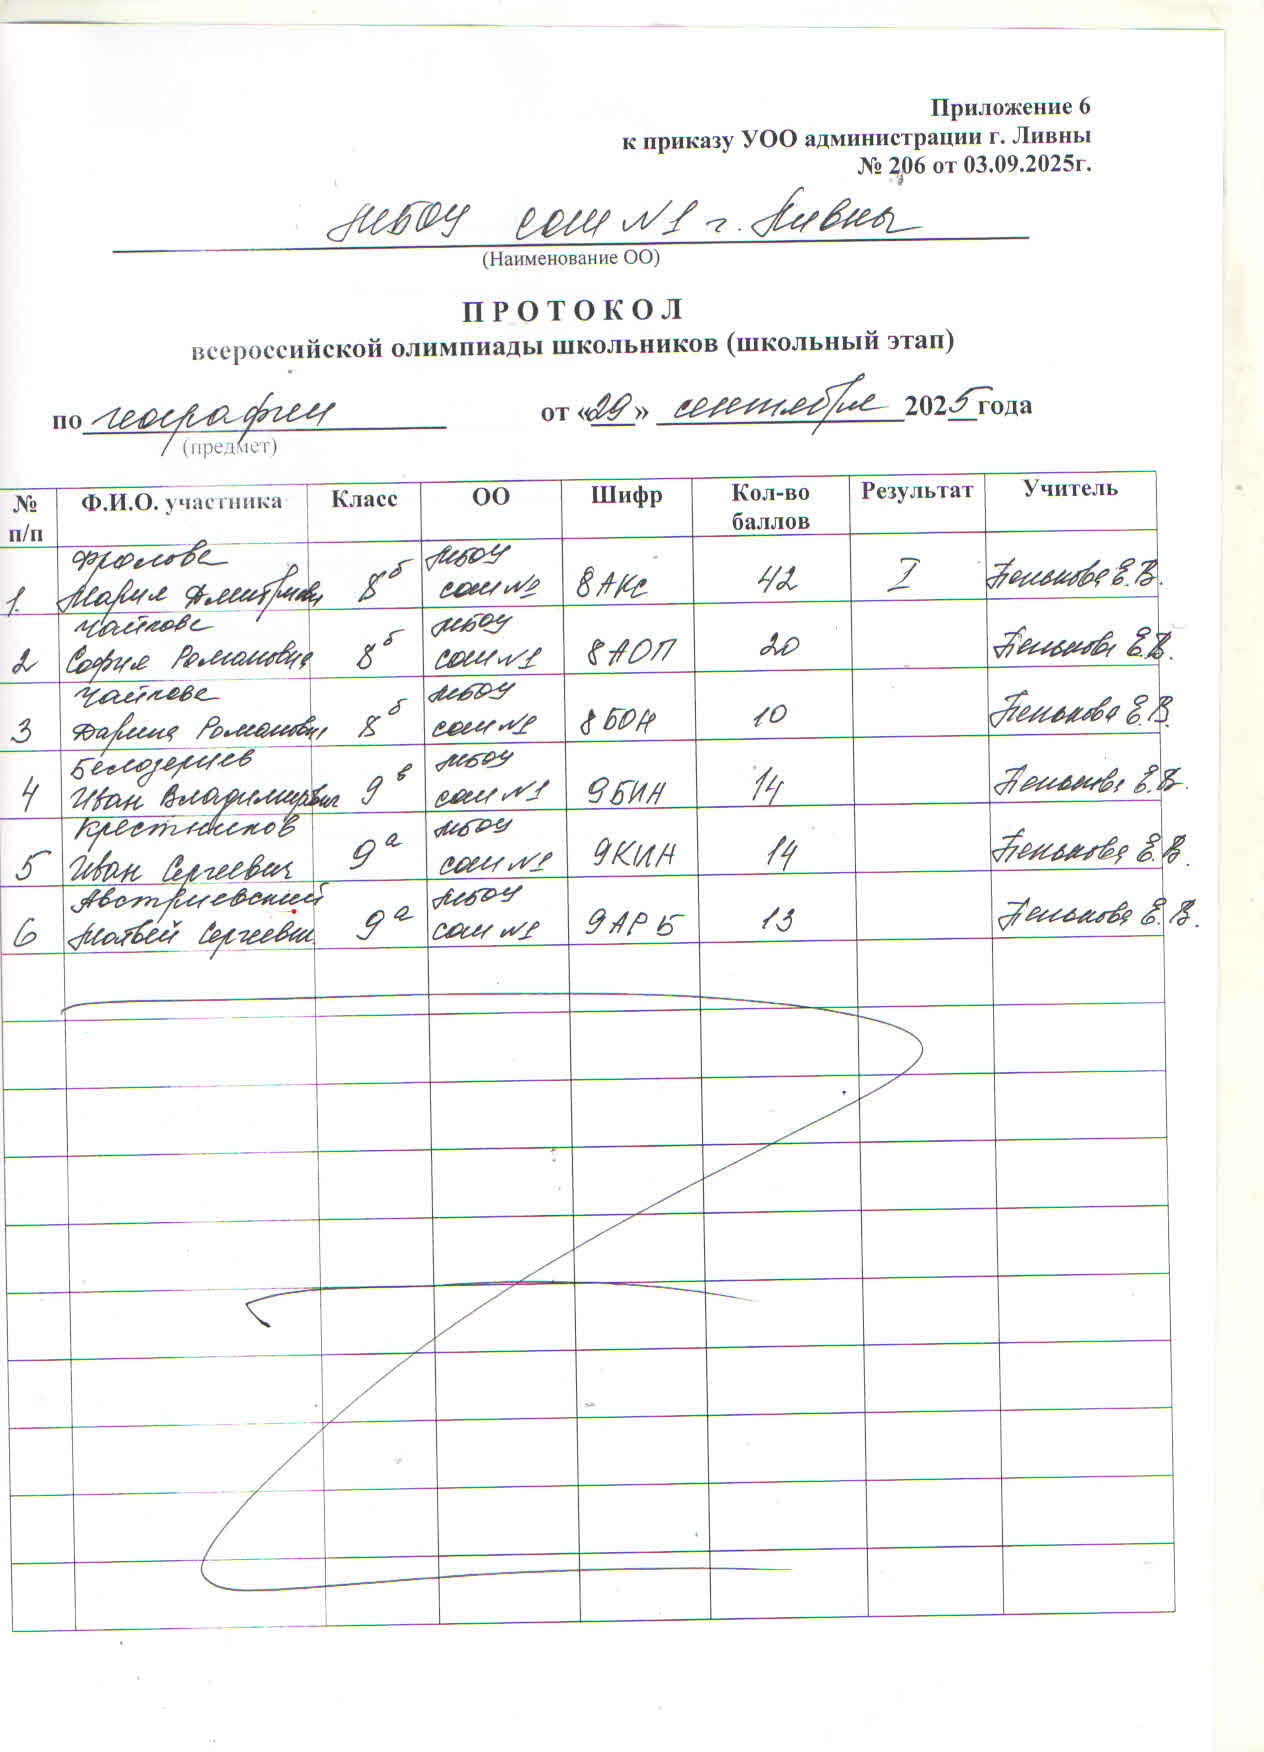 Приложение 6
к приказу УОО администрации г. Ливны
№ 206 от 03.09.2025г.
МБОУ СОШ №1 г. Ливны
(Наименование ОО)
ПРОТОКОЛ
всероссийской олимпиады школьников (школьный этап)
по географии от «29» сентября 2025 года
(предмет)
№ п/п Ф.И.О. участника Класс ОО Шифр Кол-во баллов Результат Учитель
Фролова МБОУ
1. Мария Дмитриевн 8б СОШ №1 8АКС 42 I Пенькова Е.В.
Чайкова МБОУ
2 София Романовна 8б СОШ №1 8АОП 20 Пенькова Е.В.
Чайкова МБОУ
3 Дарина Романовн 8б СОШ №1 8БОН 10 Пенькова Е.В.
Белозерцев МБОУ
4 Иван Владимирович 9в СОШ №1 9БИН 14 Пенькова Е.В.
Крестников МБОУ
5 Иван Сергеевич 9а СОШ №1 9КИН 14 Пенькова Е.В.
Австриевский МБОУ
6 Матвей Сергеевич 9а СОШ №1 9АРБ 13 Пенькова Е.В.